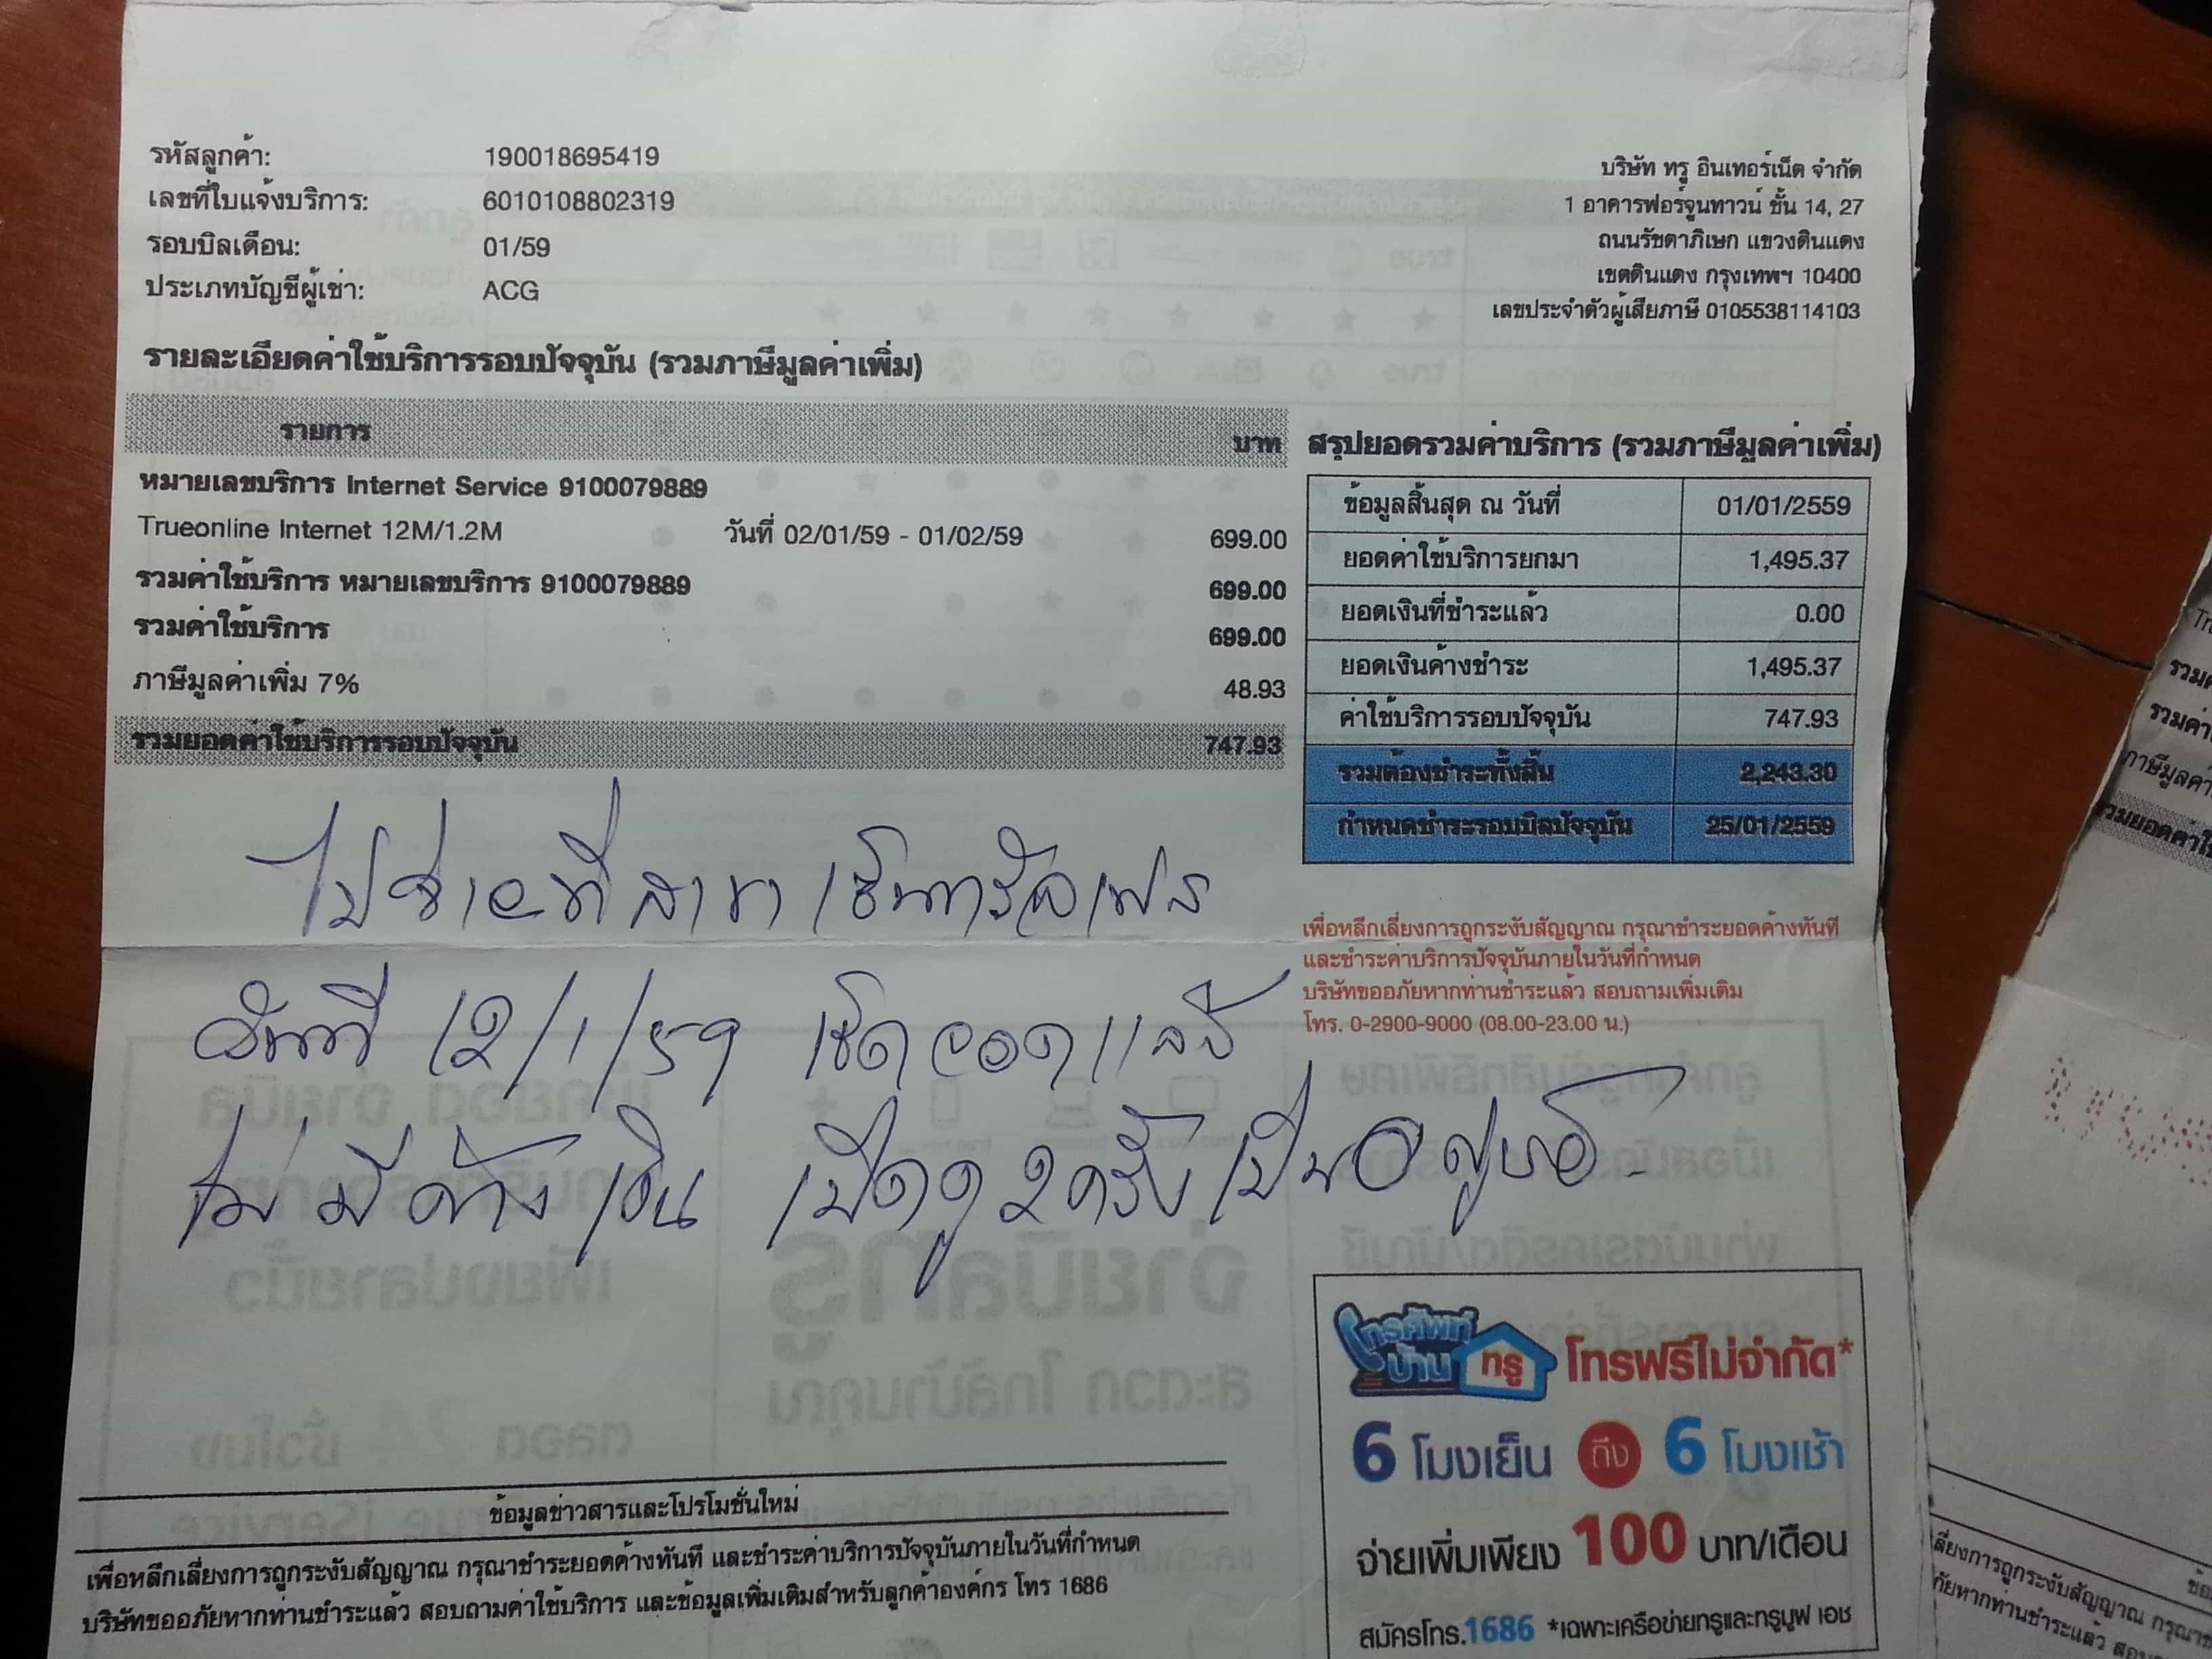 รหัสลูกค้า: 190018695419
เลขที่ใบแจ้งบริการ: 6010108802319
รอบบิลเดือน: 01/59
ประเภทบัญชีผู้เช่า: ACG
บริษัท ทรู อินเทอร์เน็ต จำกัด
1 อาคารฟอร์จูนทาวน์ ชั้น 14, 27
ถนนรัชดาภิเษก แขวงดินแดง
เขตดินแดง กรุงเทพฯ 10400
เลขประจำตัวผู้เสียภาษี 0105538114103
รายละเอียดค่าใช้บริการรอบปัจจุบัน (รวมภาษีมูลค่าเพิ่ม)
รายการ บาท
หมายเลขบริการ Internet Service 9100079889
Trueonline Internet 12M/1.2M วันที่ 02/01/59 - 01/02/59 699.00
รวมค่าใช้บริการ หมายเลขบริการ 9100079889 699.00
รวมค่าใช้บริการ 699.00
ภาษีมูลค่าเพิ่ม 7% 48.93
รวมยอดค่าใช้บริการรอบปัจจุบัน 747.93
สรุปยอดรวมค่าบริการ (รวมภาษีมูลค่าเพิ่ม)
ข้อมูลสิ้นสุด ณ วันที่ 01/01/2559
ยอดค่าใช้บริการยกมา 1,495.37
ยอดเงินที่ชำระแล้ว 0.00
ยอดเงินค้างชำระ 1,495.37
ค่าใช้บริการรอบปัจจุบัน 747.93
รวมต้องชำระทั้งสิ้น 2,243.30
กำหนดชำระรอบบิลปัจจุบัน 25/01/2559
เพื่อหลีกเลี่ยงการถูกระงับสัญญาณ กรุณาชำระยอดค้างทันที
และชำระค่าบริการปัจจุบันภายในวันที่กำหนด
บริษัทขออภัยหากท่านชำระแล้ว สอบถามเพิ่มเติม
โทร. 0-2900-9000 (08.00-23.00 น.)
ไปจ่ายที่สาขา
วันที่ 12/1/59 เช็คยอดแล้ว
ไม่มีค้างเงิน เปิดดู 2 ครั้ง เป็น 0
โทรศัพท์บ้าน ทรู โทรฟรีไม่จำกัด*
6 โมงเย็น ถึง 6 โมงเช้า
จ่ายเพิ่มเพียง 100 บาท/เดือน
สมัครโทร.1686 *เฉพาะเครือข่ายทรูและทรูมูฟ เอช
ข้อมูลข่าวสารและโปรโมชั่นใหม่
เพื่อหลีกเลี่ยงการถูกระงับสัญญาณ กรุณาชำระยอดค้างทันที และชำระค่าบริการปัจจุบันภายในวันที่กำหนด
บริษัทขออภัยหากท่านชำระแล้ว สอบถามค่าใช้บริการ และข้อมูลเพิ่มเติมสำหรับลูกค้าองค์กร โทร 1686